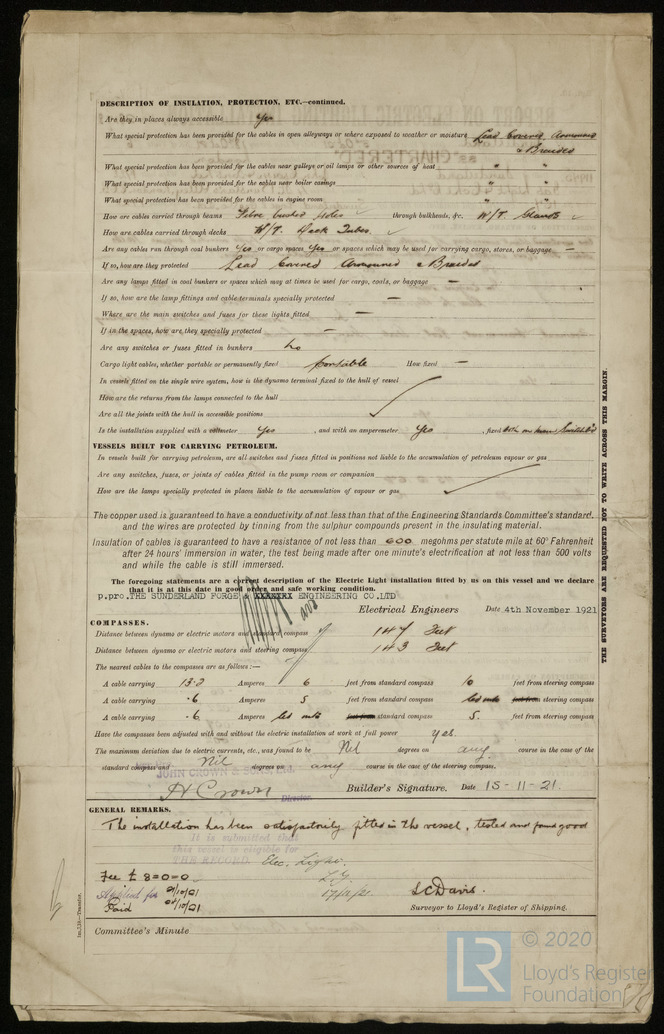 DESCRIPTION OF INSULATION, PROTECTION, ETC.—continued.
Are they in places always accessible Yes
What special protection has been provided for the cables in open alleyways or where exposed to weather or moisture Lead Covered Armoured
& Braided
What special protection has been provided for the cables near galleys or oil lamps or other sources of heat " "
What special protection has been provided for the cables near boiler casings " "
What special protection has been provided for the cables in engine room " "
How are cables carried through beams Fibre bushed holes through bulkheads, &c. W/T Glands
How are cables carried through decks W/T. Deck Tubes.
Are any cables run through coal bunkers Yes or cargo spaces Yes or spaces which may be used for carrying cargo, stores, or baggage —
If so, how are they protected Lead Covered Armoured & Braided
Are any lamps fitted in coal bunkers or spaces which may at times be used for cargo, coals, or baggage —
If so, how are the lamp fittings and cable terminals specially protected —
Where are the main switches and fuses for these lights fitted —
If in the spaces, how are they specially protected —
Are any switches or fuses fitted in bunkers No
Cargo light cables, whether portable or permanently fixed portable How fixed —
In vessels fitted on the single wire system, how is the dynamo terminal fixed to the hull of vessel
How are the returns from the lamps connected to the hull
Are all the joints with the hull in accessible positions
Is the installation supplied with a voltmeter Yes, and with an amperemeter Yes, fixed both on main Switchb'd
VESSELS BUILT FOR CARRYING PETROLEUM.
In vessels built for carrying petroleum, are all switches and fuses fitted in positions not liable to the accumulation of petroleum vapour or gas
Are any switches, fuses, or joints of cables fitted in the pump room or companion
How are the lamps specially protected in places liable to the accumulation of vapour or gas
The copper used is guaranteed to have a conductivity of not less than that of the Engineering Standards Committee's standard,
and the wires are protected by tinning from the sulphur compounds present in the insulating material.
Insulation of cables is guaranteed to have a resistance of not less than 600 megohms per statute mile at 60° Fahrenheit
after 24 hours' immersion in water, the test being made after one minute's electrification at not less than 500 volts
and while the cable is still immersed.
The foregoing statements are a correct description of the Electric Light installation fitted by us on this vessel and we declare
that it is at this date in good order and safe working condition.
p.pro.THE SUNDERLAND FORGE & XXXXXXX ENGINEERING CO.LTD
Electrical Engineers Date 4th November 1921
COMPASSES.
Distance between dynamo or electric motors and standard compass 147 Feet
Distance between dynamo or electric motors and steering compass 143 Feet
The nearest cables to the compasses are as follows:—
A cable carrying 13.2 Amperes 6 feet from standard compass 10 feet from steering compass
A cable carrying .6 Amperes 5 feet from standard compass led into feet from steering compass
A cable carrying .6 Amperes led into feet from standard compass 5. feet from steering compass
Have the compasses been adjusted with and without the electric installation at work at full power Yes.
The maximum deviation due to electric currents, etc., was found to be Nil degrees on any course in the case of the
standard compass and Nil degrees on any course in the case of the steering compass.
JOHN CROWN & SONS, Ltd.
H Crown Director. Builder's Signature. Date 15-11-21.
GENERAL REMARKS.
The installation has been satisfactorily fitted in the vessel, tested and found good
It is submitted that
this vessel is eligible for
THE RECORD. Elec. Light.
Fee £ 8=0=0
Applied for
Paid
S C Davis.
Surveyor to Lloyd's Register of Shipping.
Committee's Minute
THE SURVEYORS ARE REQUESTED NOT TO WRITE ACROSS THIS MARGIN.
LR © 2020
Lloyd's Register
Foundation